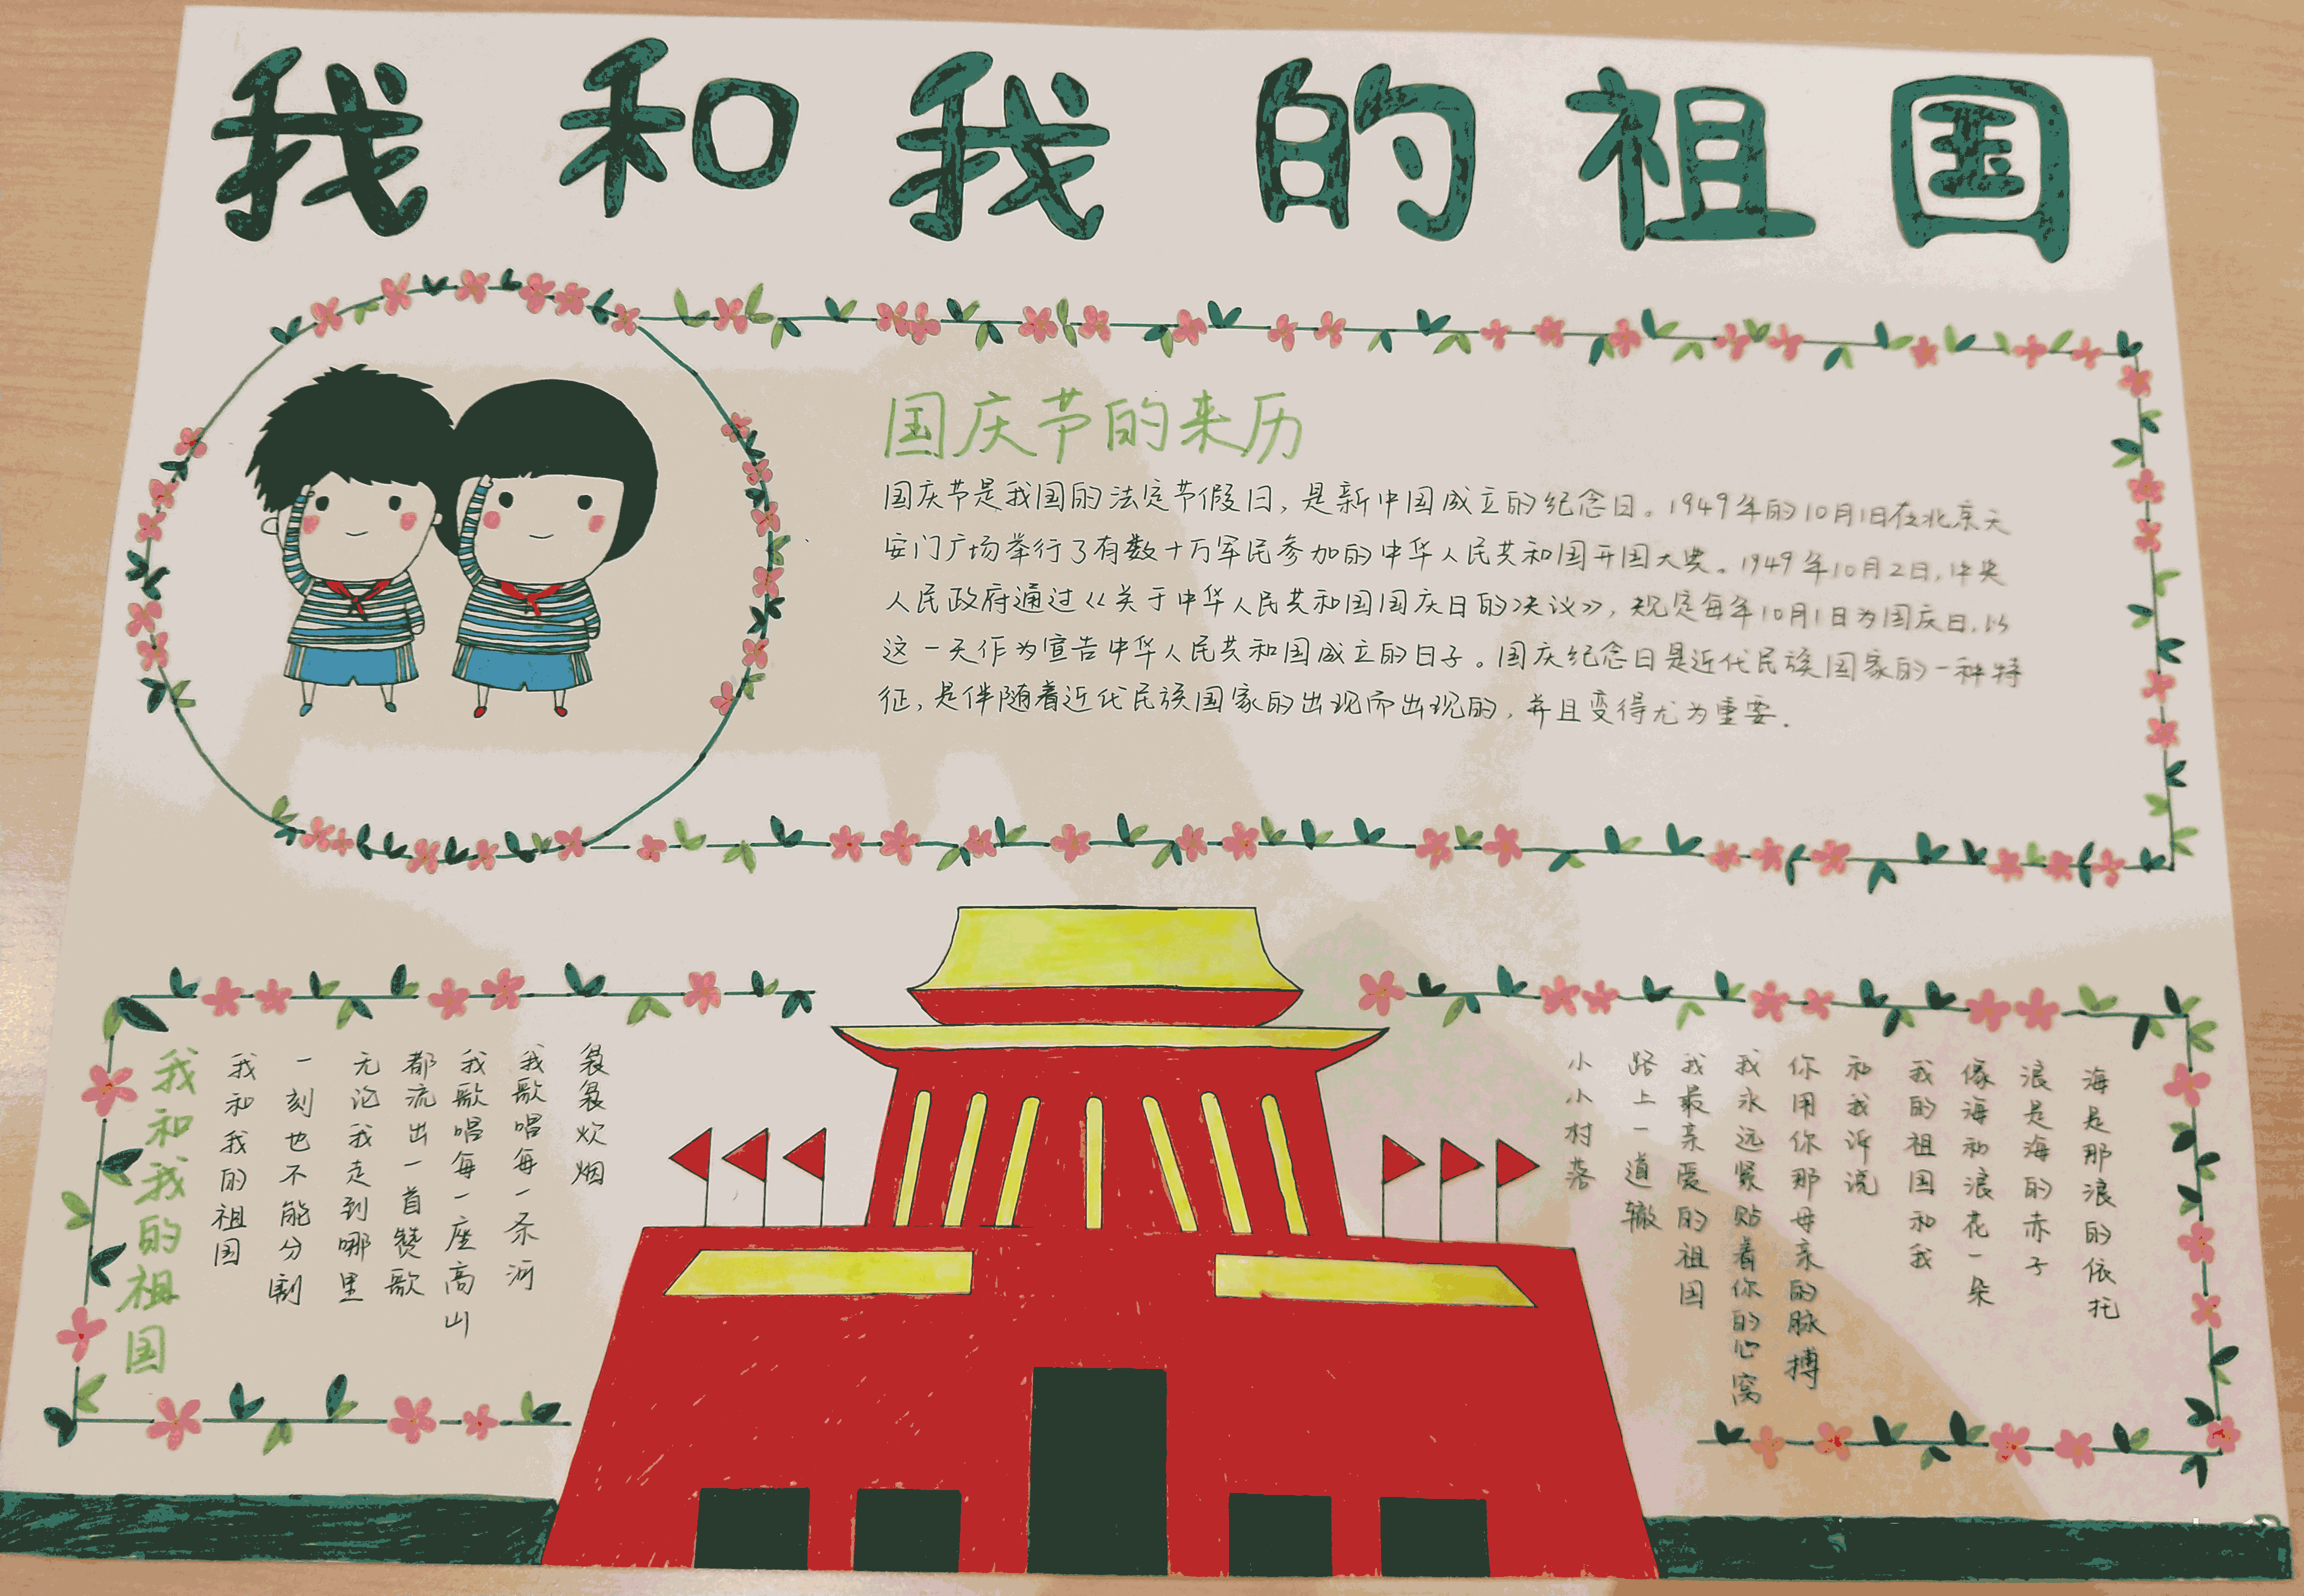 我和我的祖国
国庆节的来历
国庆节是我国的法定节假日，是新中国成立的纪念日。1949年的10月1日在北京天
安门广场举行了有数十万军民参加的中华人民共和国开国大典。1949年10月2日，中央
人民政府通过《关于中华人民共和国国庆日的决议》，规定每年10月1日为国庆日，以
这一天作为宣告中华人民共和国成立的日子。国庆纪念日是近代民族国家的一种特
征，是伴随着近代民族国家的出现而出现的，并且变得尤为重要.
我和我的祖国
我和我的祖国
一刻也不能分割
无论我走到哪里
都流出一首赞歌
我歌唱每一座高山
我歌唱每一条河
袅袅炊烟
小小村落
路上一道辙
我最亲爱的祖国
我永远紧贴着你的心窝
你用你那母亲的脉搏
和我诉说
我的祖国和我
像海和浪花一朵
浪是海的赤子
海是那浪的依托